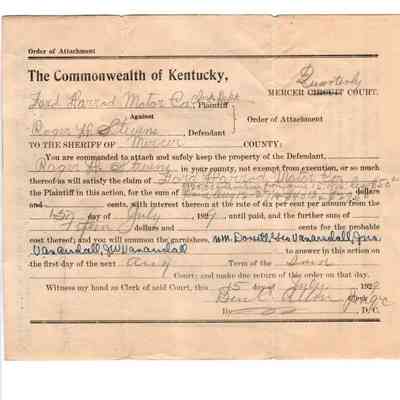 Order of Attachment
The Commonwealth of Kentucky,
Quarterly
MERCER CIRCUIT COURT.
Ford Harrod Motor Co. Plaintiff
Against
Order of Attachment
Roger H Stevens, Defendant
TO THE SHERIFF OF Mercer COUNTY:
You are commanded to attach and safely keep the property of the Defendant,
Roger H Stevens in your county, not exempt from execution, or so much
thereof as will satisfy the claim of Ford Harrod Motor Co.
the Plaintiff in this action, for the sum of dollars
and cents, with interest thereon at the rate of six per cent per annum from the
day of July, 1929 until paid, and the further sum of
Fifteen dollars and cents for the probable
cost thereof; and you will summon the garnishees, Wm.
Vanarsdall, JW Vanarsdall to answer in this action on
the first day of the next Aug Term of the
Court; and make due return of this order on that day.
Witness my hand as Clerk of said Court, this 15 day of July 1929
Ben C. Allen Judge
By D.C.